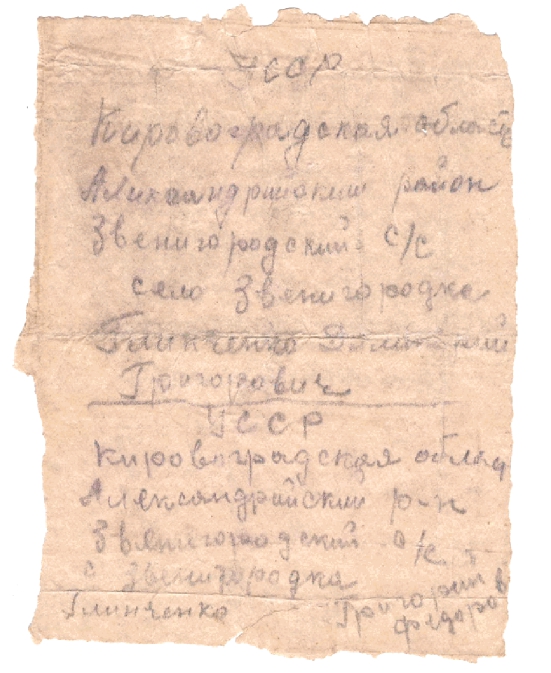 УССР
Кировоградская область
Алихаандрийский район
Звенигородский с/с
село Звенигородка
Глинченко
Григорович
УССР
Кировоградская облас
Александрийский р-н
Звенигородский с/с
с Звенигородка
Глинченко Григорий
Федоров